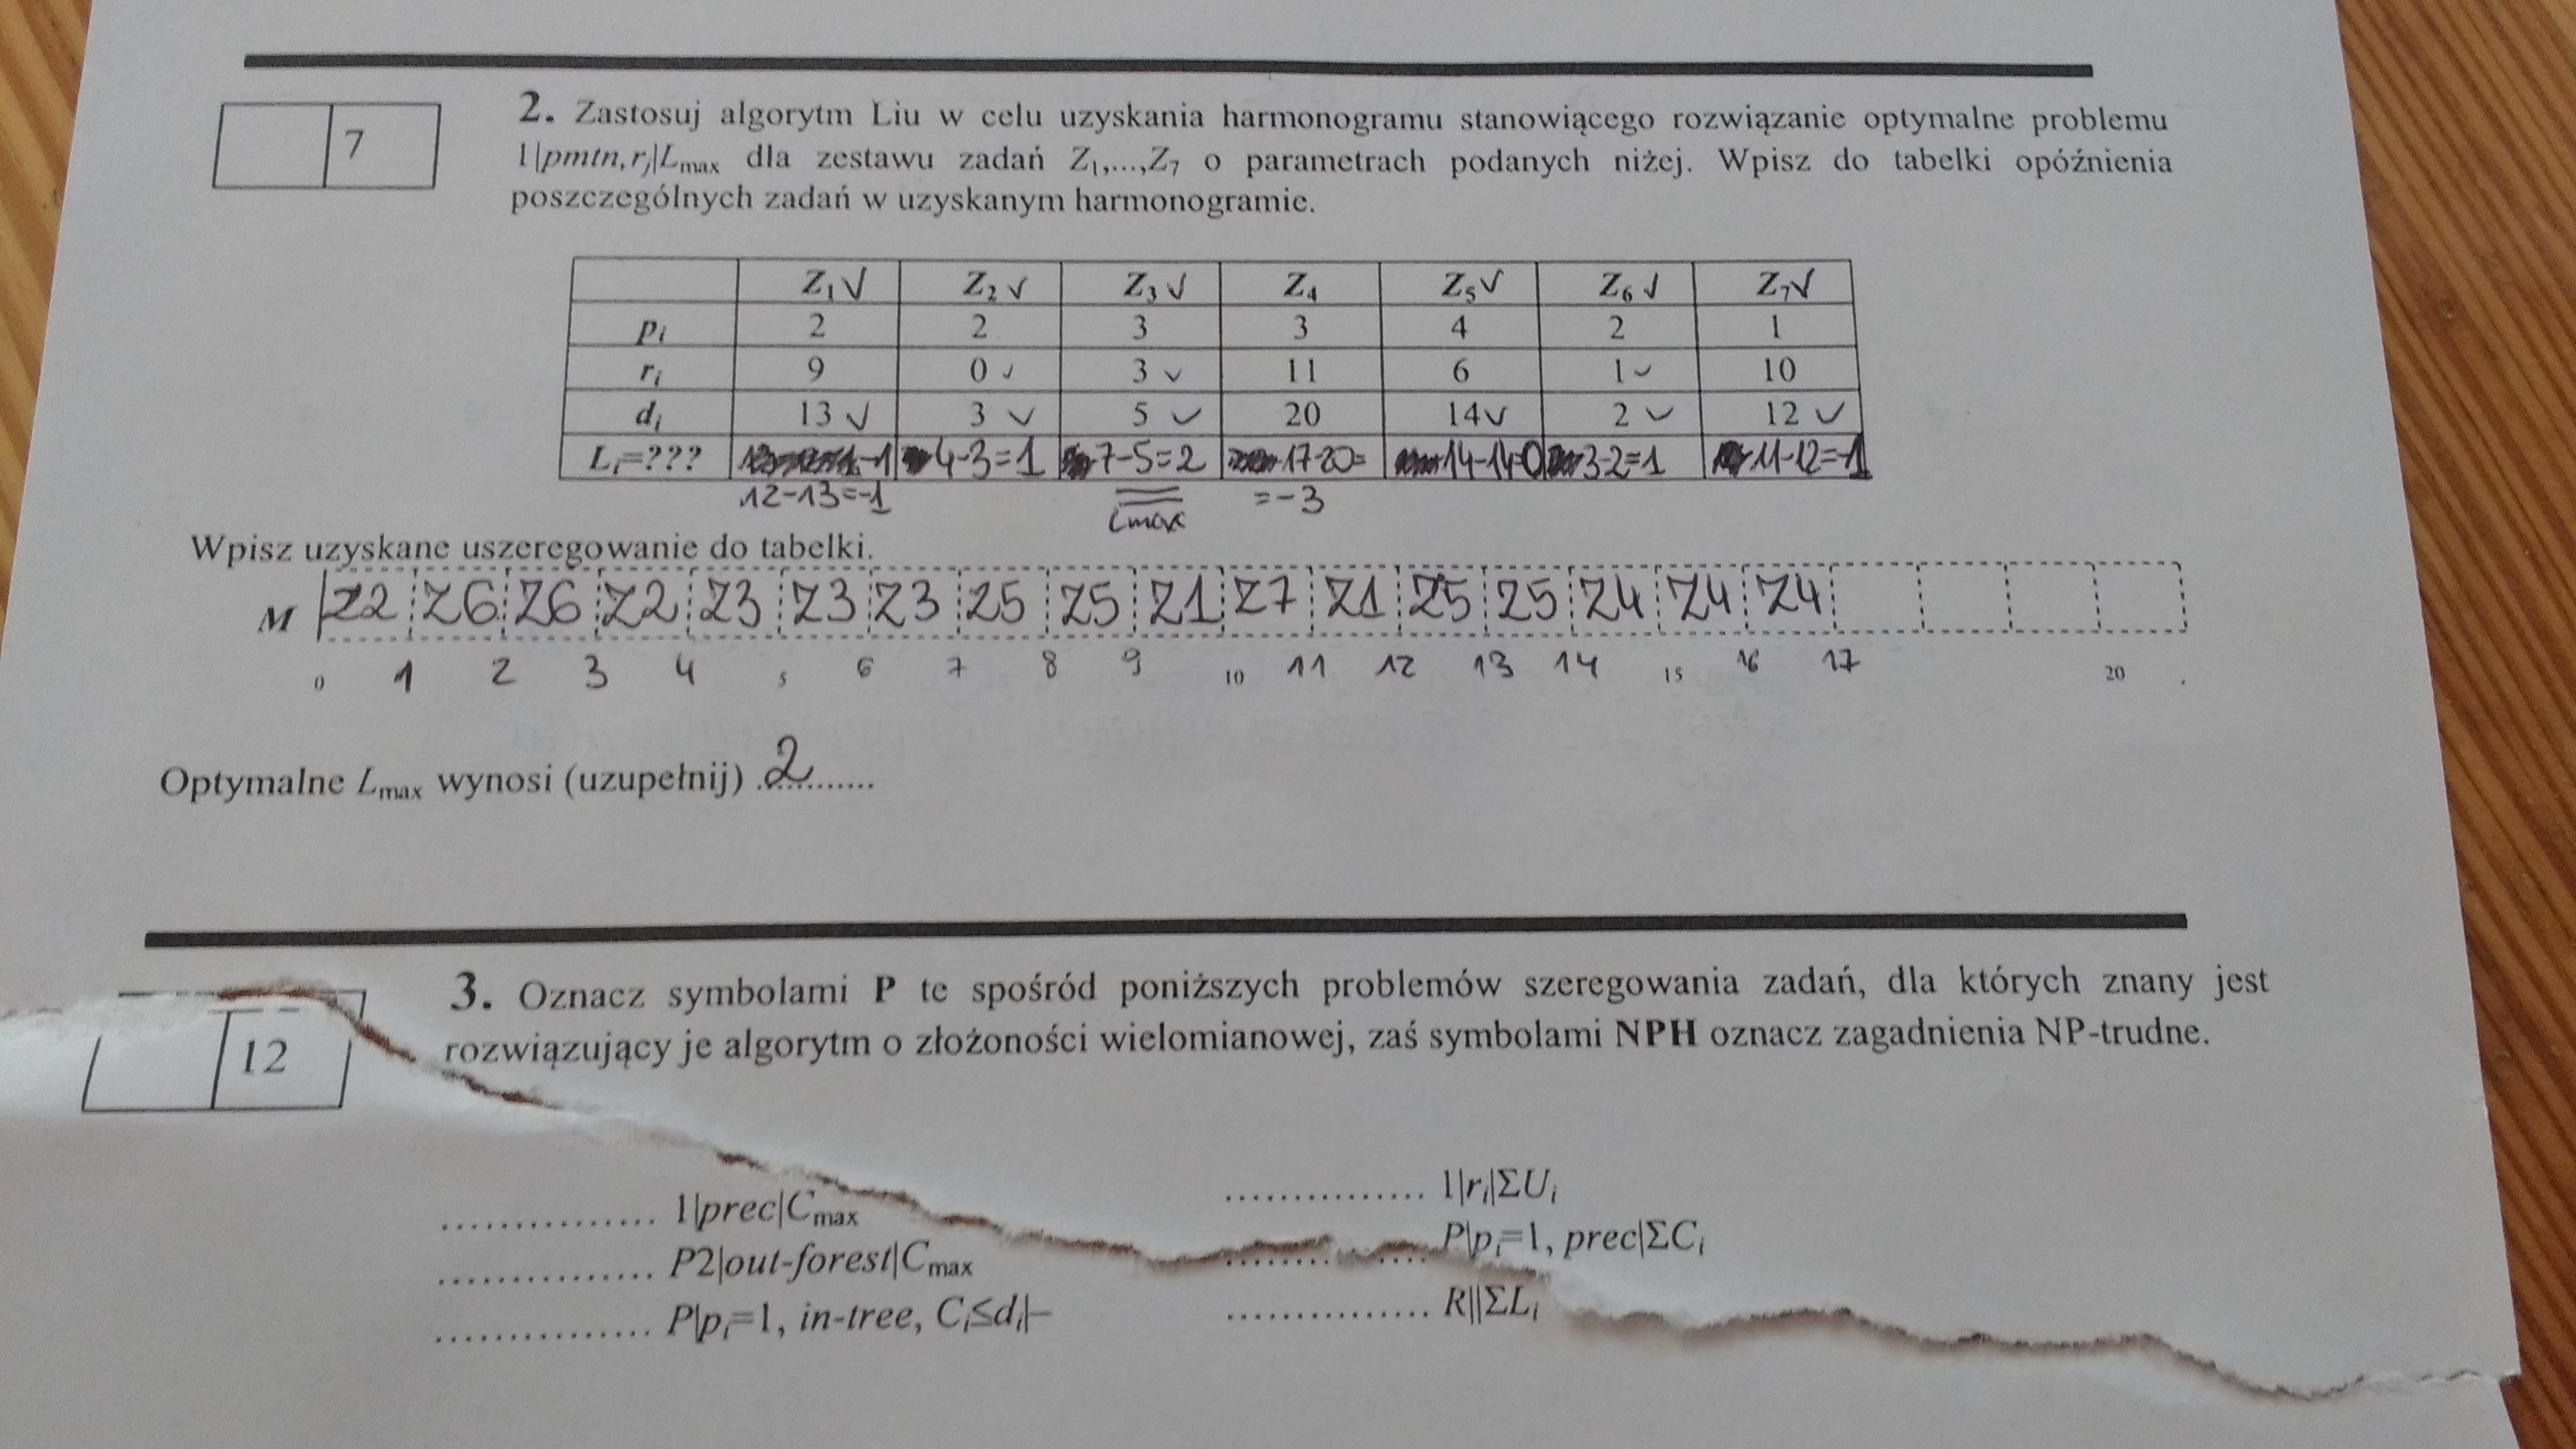 7
2. Zastosuj algorytm Liu w celu uzyskania harmonogramu stanowiącego rozwiązanie optymalne problemu
1|pmtn,rj|Lmax dla zestawu zadań Z1,...,Z7 o parametrach podanych niżej. Wpisz do tabelki opóźnienia
poszczególnych zadań w uzyskanym harmonogramie.
Z1 √ Z2 √ Z3 √ Z4 Z5 √ Z6 √ Z7 √
pi 2 2 3 3 4 2 1
ri 9 0 ✓ 3 ✓ 11 6 1 ✓ 10
di 13 ✓ 3 ✓ 5 ✓ 20 14 ✓ 2 ✓ 12 ✓
Li=??? -1 4-3=1 7-5=2 17-20= 14-14=0 3-2=1 11-12=-1
12-13=-1 Lmax =-3
Wpisz uzyskane uszeregowanie do tabelki.
M Z2 Z6 Z6 Z2 Z3 Z3 Z3 Z5 Z5 Z1 Z7 Z1 Z5 Z5 Z4 Z4 Z4
0 1 2 3 4 5 6 7 8 9 10 11 12 13 14 15 16 17 20
Optymalne Lmax wynosi (uzupełnij) .2.......
12
3. Oznacz symbolami P te spośród poniższych problemów szeregowania zadań, dla których znany jest
rozwiązujący je algorytm o złożoności wielomianowej, zaś symbolami NPH oznacz zagadnienia NP-trudne.
............... 1|prec|Cmax
............... P2|out-forest|Cmax
............... P|pi=1, in-tree, Ci≤di|–
............... 1|ri|ΣUi
............... P|pi=1, prec|ΣCi
............... R||ΣLi